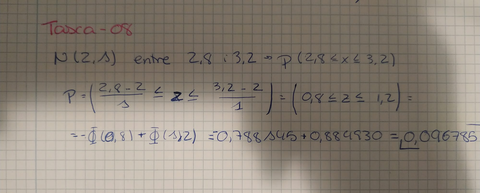 Tasca-08
N(2,1) entre 2,8 i 3,2 = P(2,8 ≤ x ≤ 3,2)
P = (2,8-2/1 ≤ z ≤ 3,2-2/1) = (0,8 ≤ z ≤ 1,2) =
= -Φ(0,8) + Φ(1,2) = 0,788145 + 0,884930 = 0,096785